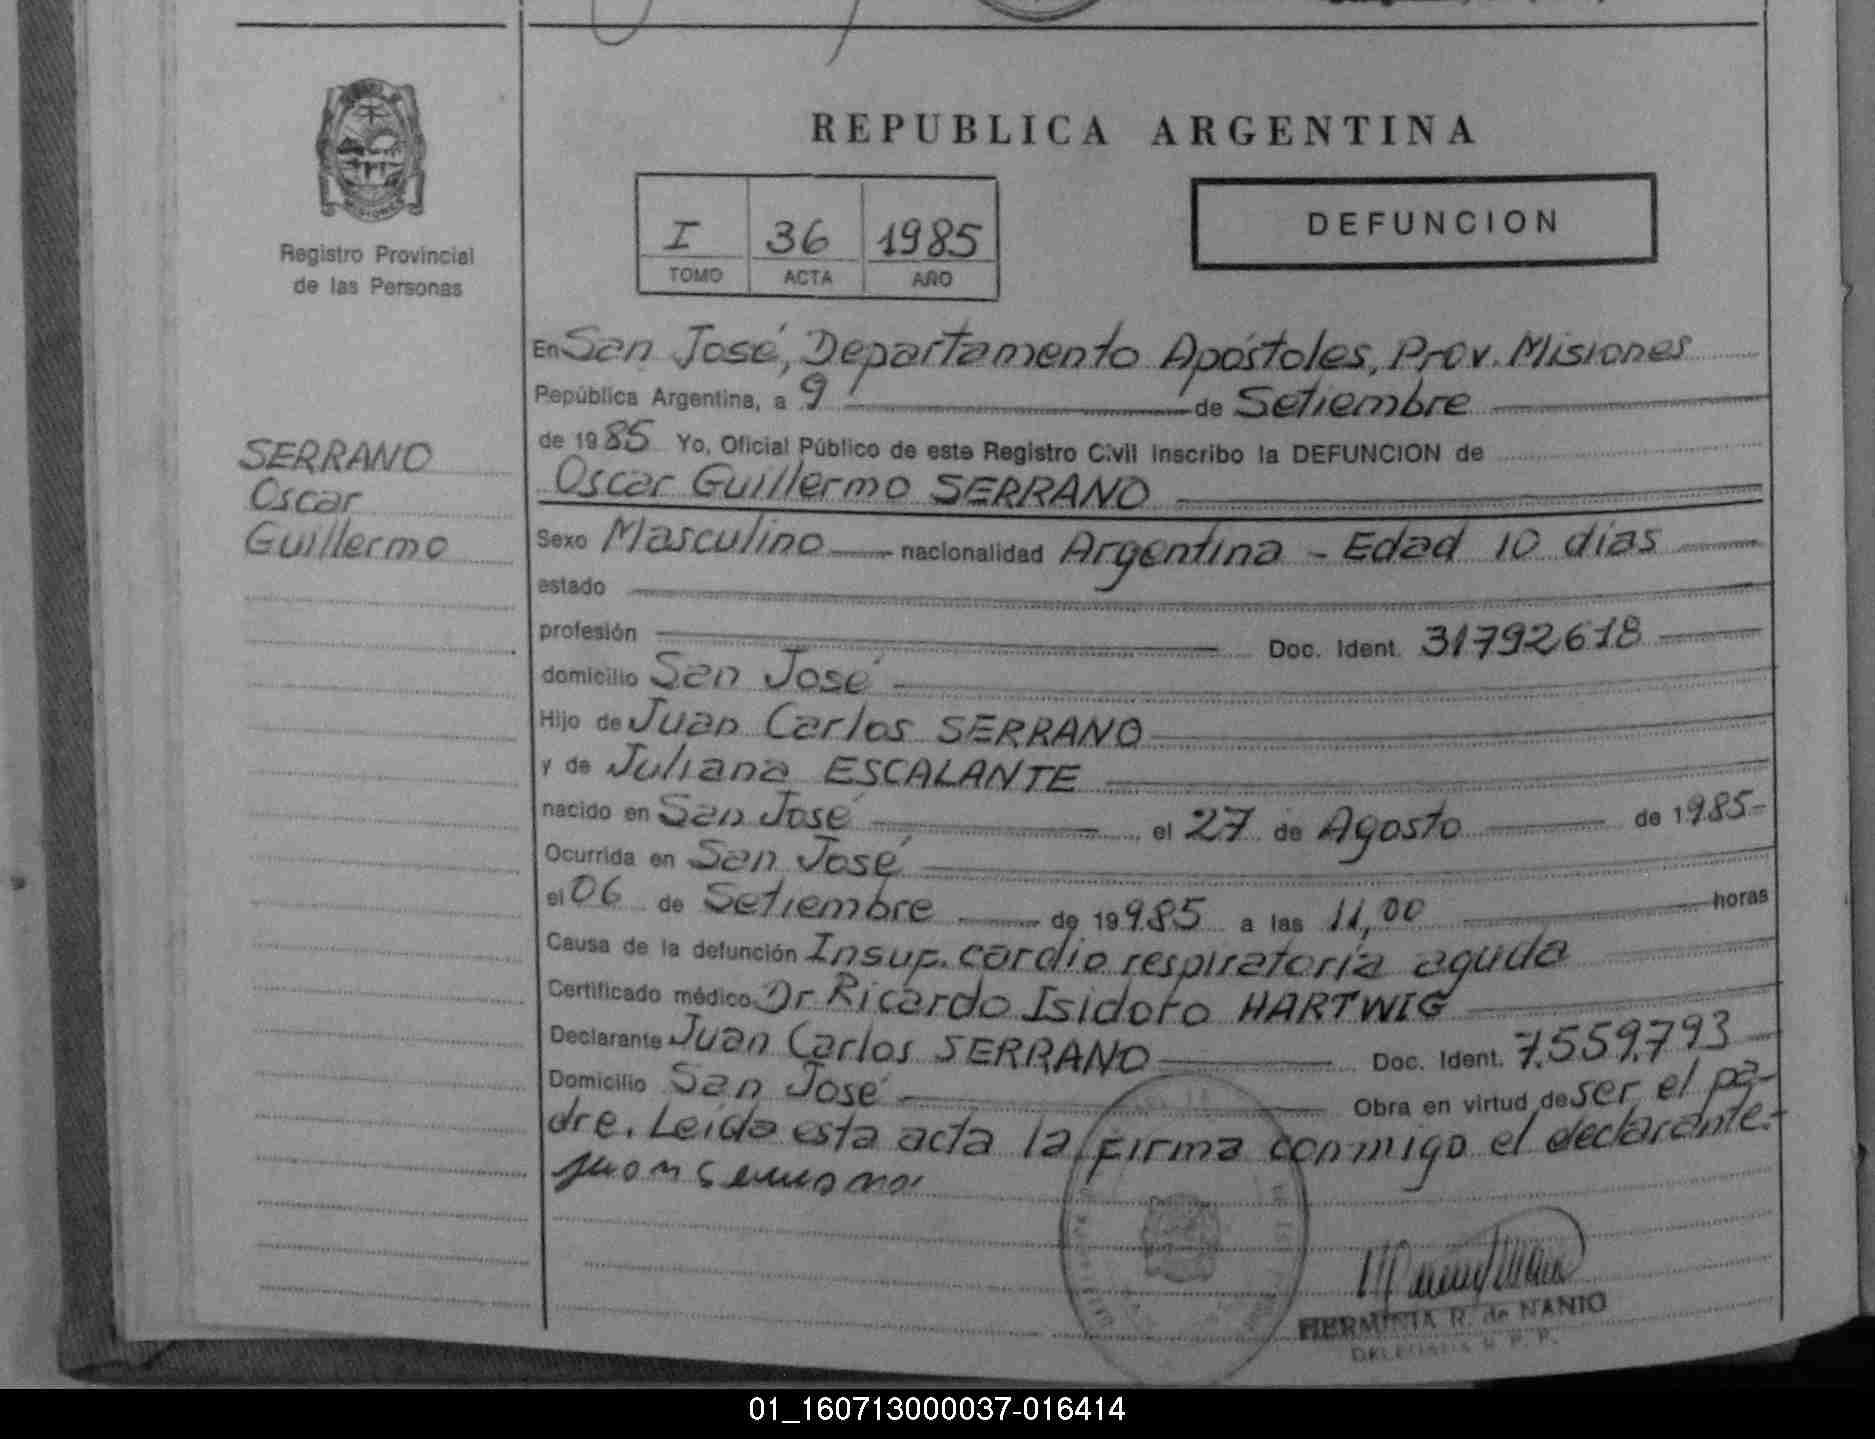 REPUBLICA ARGENTINA
MISIONES
Registro Provincial
de las Personas
I 36 1985
TOMO ACTA AÑO
DEFUNCION
SERRANO
Oscar
Guillermo
En San José, Departamento Apóstoles, Prov. Misiones
República Argentina, a 9 de Setiembre
de 1985 Yo, Oficial Público de este Registro Civil inscribo la DEFUNCION de
Oscar Guillermo SERRANO
Sexo Masculino nacionalidad Argentina - Edad 10 días
estado
profesión Doc. Ident. 31792618
domicilio San José
Hijo de Juan Carlos SERRANO
y de Juliana ESCALANTE
nacido en San José el 27 de Agosto de 1985-
Ocurrida en San José
el 06 de Setiembre de 19985 a las 11,00 horas
Causa de la defunción Insuf. cardio respiratoria aguda
Certificado médico Dr Ricardo Isidoro HARTWIG
Declarante Juan Carlos SERRANO Doc. Ident. 7.559.793
Domicilio San José Obra en virtud de ser el pa-
dre. Leída esta acta la firma conmigo el declarante.-
HERMINIA R. de NANIO
R. P. P.
01_160713000037-016414